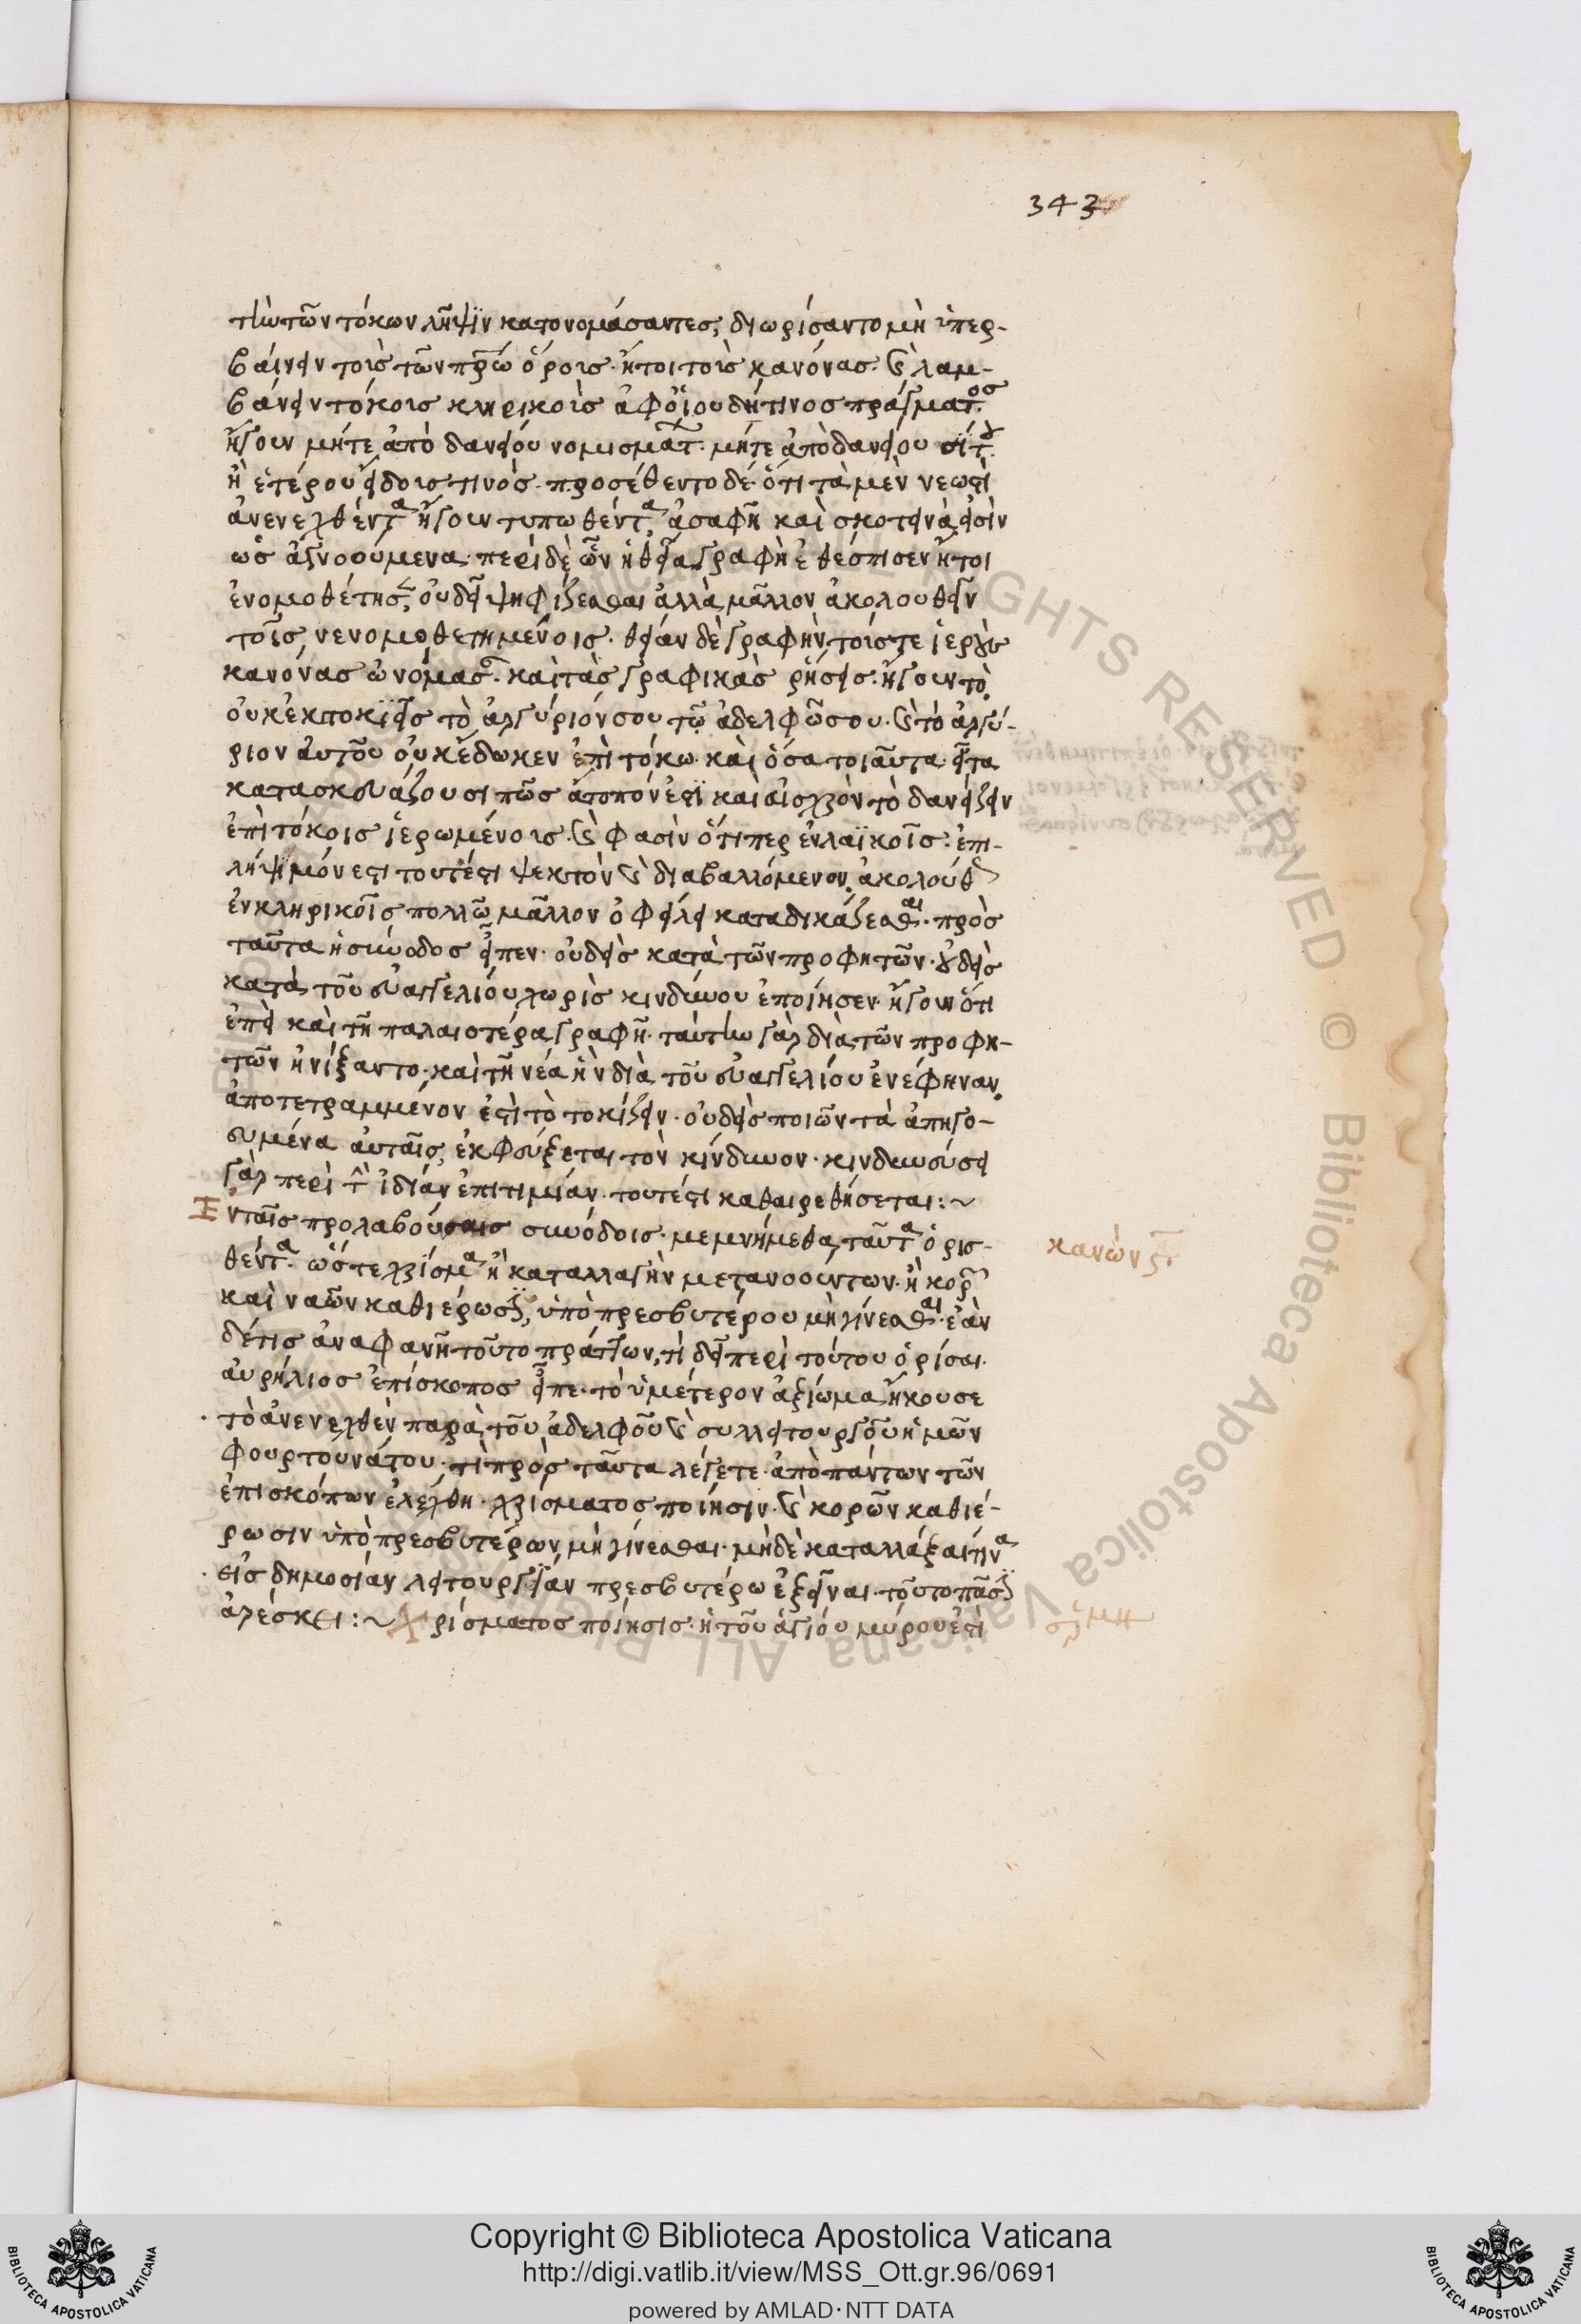 343
τὴν τῶν τόκων λῆψιν κατονομάσαντες, διωρίσαντο μὴ ὑπερ-
βαίνειν τοὺς τῶν πρῶ ὅρους· ἤτοι τοὺς κανόνας· καὶ λαμ-
βάνειν τόκους κληρικοὺς ἀφ' οἵου δήτινος πράγματος
ἤγουν μήτε ἀπὸ δανείου νομισμάτ· μήτε ἀπὸ δανείου σίτου
ἢ ἑτέρου εἴδους τινός· προσέθεντο δὲ ὅτι τὰ μὲν νεωστὶ
ἀνενεχθέντα ἤγουν τυπωθέντα, ἀσαφῆ καὶ σκοτεινὰ εἰσὶν
ὡς ἀγνοούμενα· περὶ δὲ ὧν ἡ θεία γραφὴ ἐθέσπισεν ἤτοι
ἐνομοθέτησ, οὐ δεῖ ψηφίζεσθαι ἀλλὰ μᾶλλον ἀκολουθεῖν
τοῖς νενομοθετημένοις· θείαν δὲ γραφὴν τούς τε ἱεροὺς
κανόνας ὠνόμασ· καὶ τὰς γραφικὰς ῥήσεις· ἤγουν τὸ
οὐκ ἐκτοκιεῖς τὸ ἀργύριόν σου τῷ ἀδελφῶ σου· καὶ τὸ ἀργύ-
ριον αὐτοῦ οὐκ ἔδωκεν ἐπὶ τόκω· καὶ ὅσα τοιαῦτα· εἶτα
κατασκευάζουσι πῶς ἄτοπόν ἐστι καὶ αἰσχρὸν τὸ δανείζειν
ἐπὶ τόκοις ἱερωμένοις· καὶ φασὶν ὅτιπερ ἐν λαϊκοῖς· ἐπι-
λήψιμόν ἐστι τουτέστι ψεκτὸν καὶ διαβαλλόμενον, ἀκολούθ
ἐν κληρικοῖς πολλῶ μᾶλλον ὀφείλει καταδικάζεσθαι· πρὸς
ταῦτα ἡ σύνοδος εἶπεν· οὐδεὶς κατὰ τῶν προφητῶν· οὐδεὶς
κατὰ τοῦ εὐαγγελίου χωρὶς κινδύνου ἐποίησεν· ἤγουν ὅτι
ἐπεὶ καὶ τῆ παλαιοτέρα γραφῆ· ταύτην γὰρ διὰ τῶν προφη-
τῶν ἠνίξαντο· καὶ τῆ νέα ἣν διὰ τοῦ εὐαγγελίου ἐνέφηναν,
ἀποτετραμμένον ἐστὶ τὸ τοκίζειν· οὐδεὶς ποιῶν τὰ ἀπηγο-
ρευμένα αὐταῖς, ἐκφεύξεται τὸν κίνδυνον· κινδυνεύσει
γὰρ περὶ τ ἰδίαν ἐπιτιμίαν· τουτέστι καθαιρεθήσεται:~
Ἐν ταῖς προλαβούσαις συνόδοις· μεμνήμεθα ταῦτα ὁρισ-
κανὼν ϛ·
θέντα· ὥστε χρίσμα ἢ καταλλαγὴν μετανοούντων· ἢ κορ
καὶ ναῶν καθιέρωσιν, ὑπὸ πρεσβυτέρου μὴ γίνεσθαι· ἐὰν
δέ τις ἀναφανῆ τοῦτο πράττων, τί δεῖ περὶ τούτου ὁρίσαι·
αὐρήλιος ἐπίσκοπος εἶπε· τὸ ὑμέτερον ἀξίωμα ἤκουσε
τὸ ἀνενεχθὲν παρὰ τοῦ ἀδελφοῦ καὶ συλλειτουργοῦ ἡμῶν
φουρτουνάτου· τί πρὸς ταῦτα λέγετε· ἀπὸ πάντων τῶν
ἐπισκόπων ἐλέχθη· χρίσματος ποίησιν· καὶ κορῶν καθιέ-
ρωσιν ὑπὸ πρεσβυτέρων μὴ γίνεσθαι· μὴ δὲ καταλλάξαι τινα
εἰς δημοσίαν λειτουργίαν πρεσβυτέρω ἐξεῖναι· τοῦτο πᾶσιν
ἀρέσκει:~ Χρίσματος ποίησις· ἡ τοῦ ἁγίου μύρου ἐστὶ